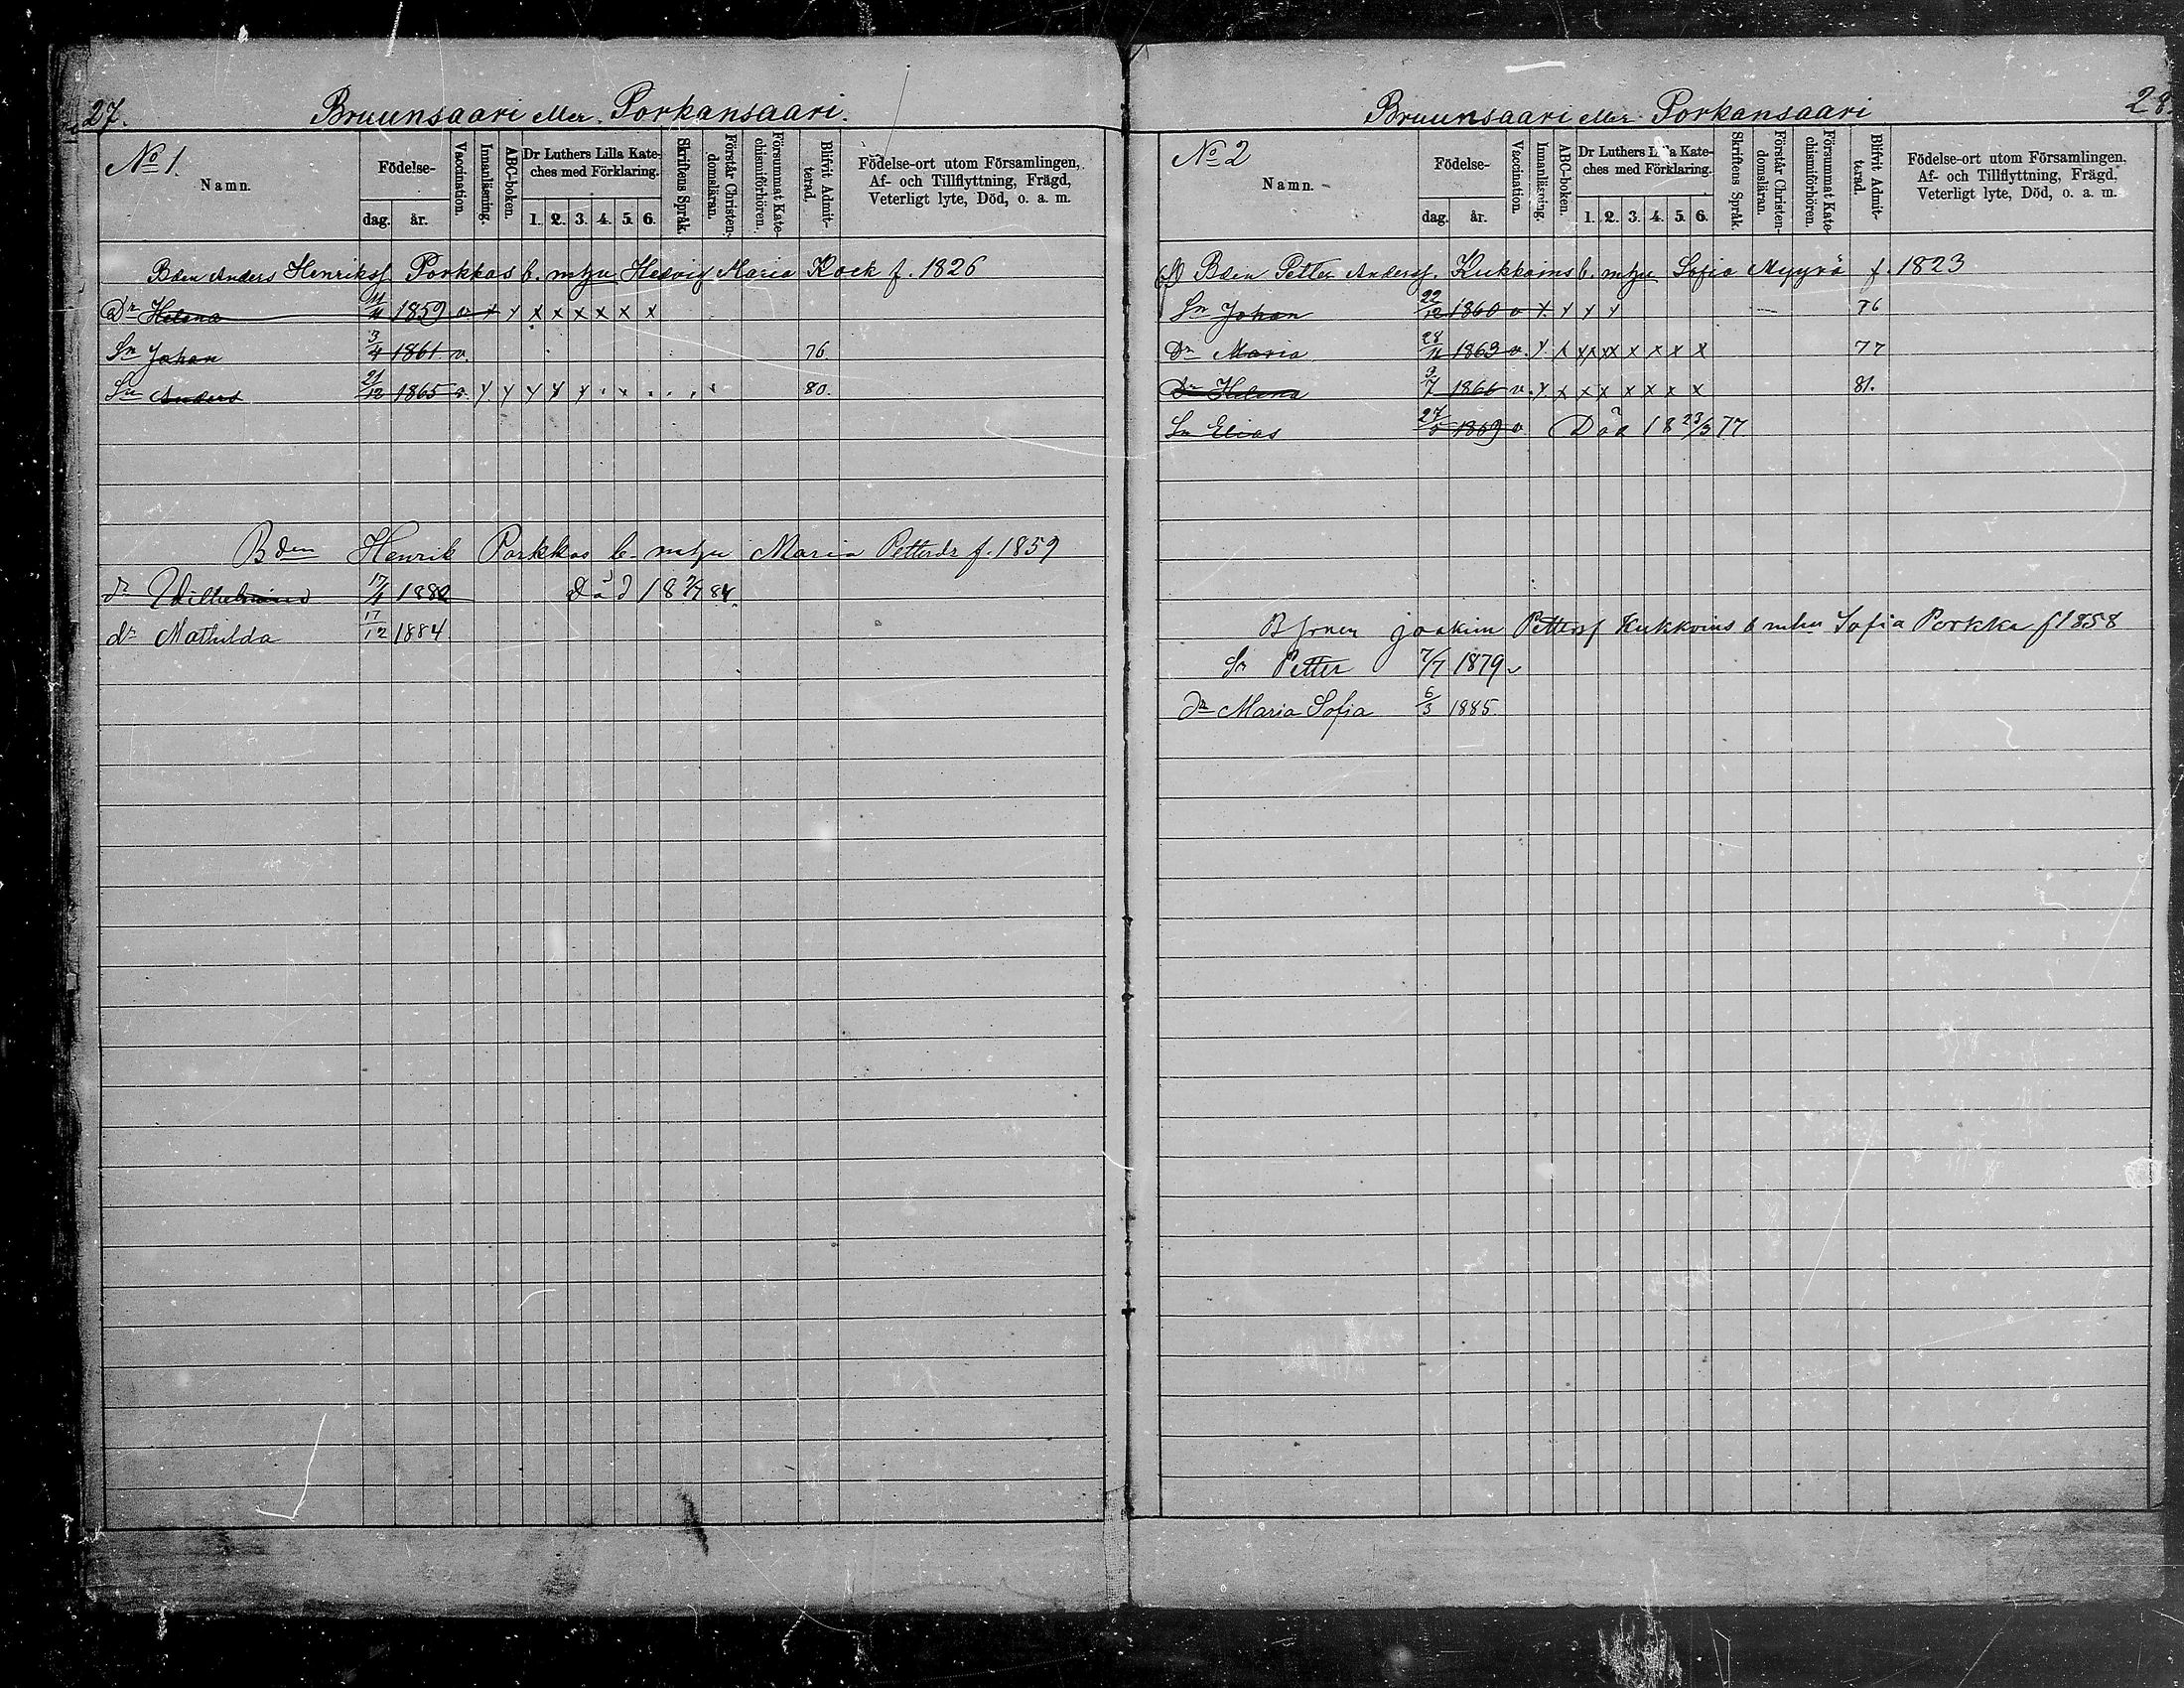 27.
Bruunsaari eller Porkansaari.
No 1.
Namn.
Födelse-
dag. år.
Vaccination.
Innanläsning.
ABC-boken.
Dr Luthers Lilla Kate-
ches med Förklaring.
1. 2. 3. 4. 5. 6.
Skriftens Språk.
Förstår Christen-
domsläran.
Försummat Kate-
chismiförhören.
Blifvit Admit-
terad.
Födelse-ort utom Församlingen,
Af- och Tillflyttning, Frägd,
Veterligt lyte, Död, o. a. m.
Bden Anders Henrikss Porkkas b. m hu Hedvig Maria Kock f. 1826
Dr Helena 1859 v x y x x x x x x
Sn Johan 3/4 1861 v. 76.
Sn Anders 21/12 1865 v. y y y y y 80.
Bden Henrik Porkkas b. m hu Maria Pettersdr f. 1859
dr 17/4 1882 Död
dr Mathilda 17/12 1884
28.
Bruunsaari eller Porkansaari
No 2
Namn.
Födelse-
dag. år.
Vaccination.
Innanläsning.
ABC-boken.
Dr Luthers Lilla Kate-
ches med Förklaring.
1. 2. 3. 4. 5. 6.
Skriftens Språk.
Förstår Christen-
domsläran.
Försummat Kate-
chismiförhören.
Blifvit Admit-
terad.
Födelse-ort utom Församlingen,
Af- och Tillflyttning, Frägd,
Veterligt lyte, Död, o. a. m.
Bden Petter Anderss. Kukkoins b. m hu Sofia Myyrä f. 1823
Sn Johan 22/12 1860 v y. y y y 76
Dr Maria 28/11 1863 v. y x xx xx x x x x 77
Dr Helena 9/7 1866 v. y. x x x x x x x 81.
Sn Elias 27/5 1869 v Död 18 23/3 77.
Joakim Petterss Kukkoins b m hu Sofia Porkka f 1858
Sn Petter 7/7 1879 v
dr Maria Sofia 6/3 1885.